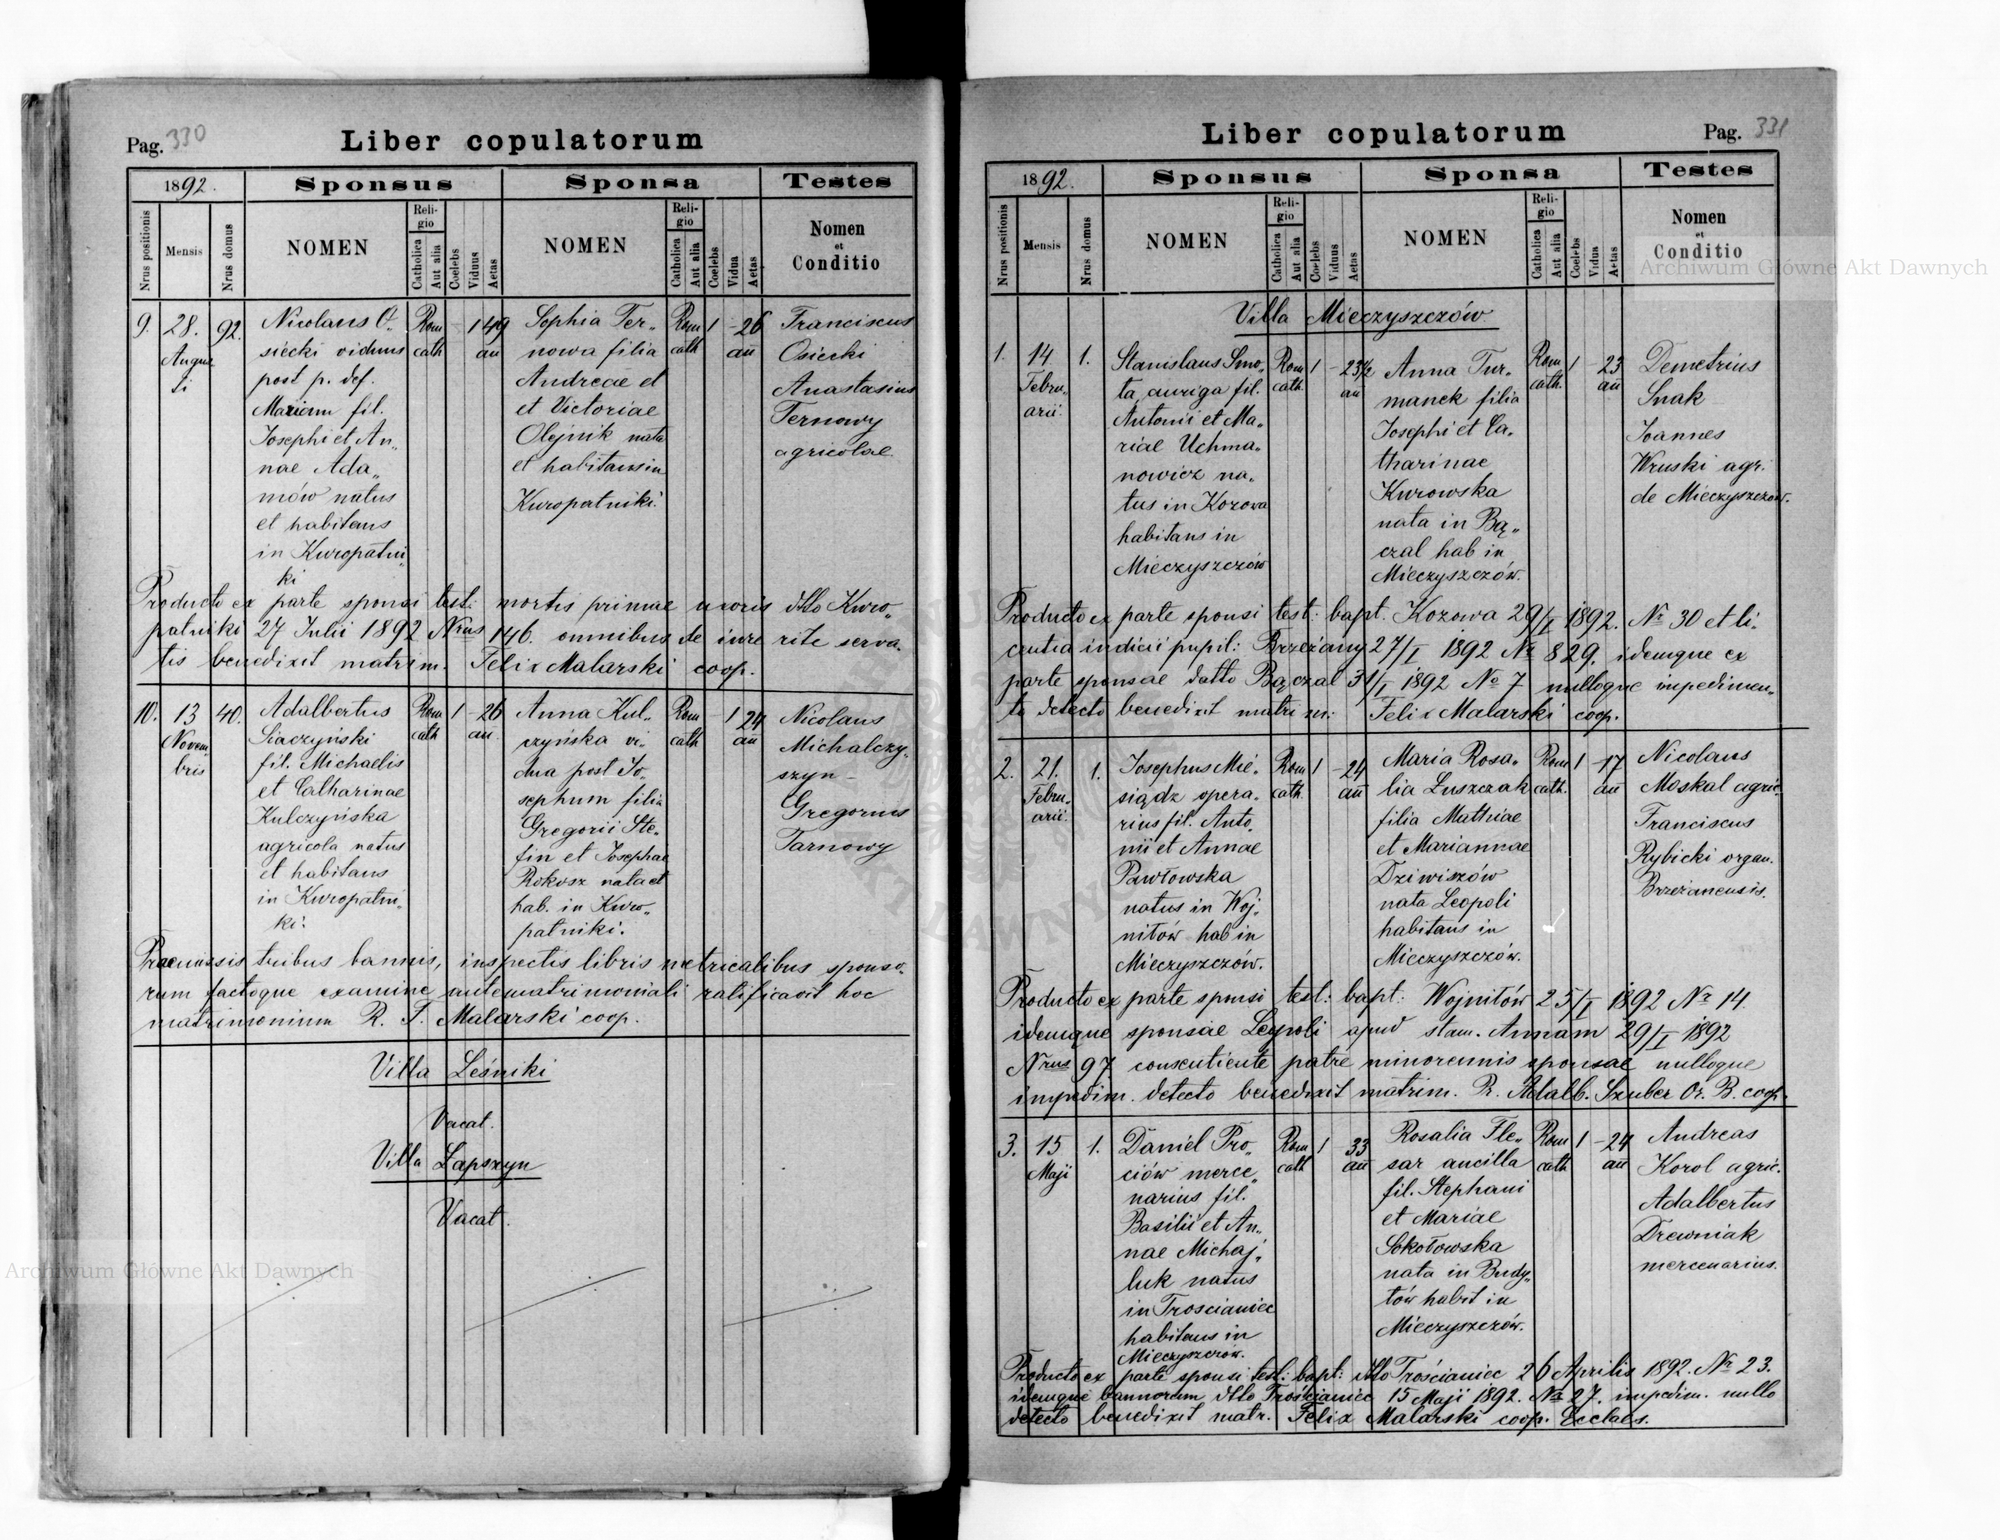 Pag. 330
Liber copulatorum
1892.
Sponsus
Sponsa
Testes
Nrus positionis
Mensis
Nrus domus
NOMEN
Reli-
gio
Catholica
Aut alia
Coelebs
Viduus
Aetas
NOMEN
Reli-
gio
Catholica
Aut alia
Coelebs
Vidua
Aetas
Nomen
et
Conditio
9.
28.
Augus
ti
92.
Nicolaus O-
siecki viduus
post p. def.
Mariam fil.
Josephi et An„
nae Ada„
mów natus
et habitans
in Kuropatni„
ki
Rom
cath
1 49
an
Sophia Ter-
nowa filia
Andreae et
et Victoriae
Olejnik nata
et habitans in
Kuropatniki.
Rom
cath
1
-26
an
Franciscus
Osiecki
Anastasius
Ternowy
agricolae
Producto ex parte sponsi test: mortis primae uxoris dtto Kuro„
patniki 27 Julii 1892 Nrus 146. omnibus de iure rite serva„
tis benedixit matrim. Felix Malarski coop.
10.
13
Novem
bris
40.
Adalbertus
Siaczyński
fil. Michaelis
et Catharinae
Kulczyńska
agricola natus
et habitans
in Kuropatni„
ki.
Rom
cath
1
-26
an.
Anna Kul-
czyńska vi-
dua post Jo-
sephum filia
Gregorii Ste-
fin et Josephae
Rokosz nata et
hab. in Kuro„
patniki.
Rom
cath
1
24
an
Nicolaus
Michalczy-
szyn -
Gregorius
Tarnowy
Praemissis tribus bannis, inspectis libris metricalibus sponso„
rum factoque examine antematrimoniali ratificavit hoc
matrimonium R. F. Malarski coop.
Villa Leśniki
Vacat.
Villa Łapszyn
Vacat.
Liber copulatorum
Pag. 331
1892.
Sponsus
Sponsa
Testes
Nrus positionis
Mensis
Nrus domus
NOMEN
Reli-
gio
Catholica
Aut alia
Coelebs
Viduus
Aetas
NOMEN
Reli-
gio
Catholica
Aut alia
Coelebs
Vidua
Aetas
Nomen
et
Conditio
Villa Mieczyszczów
1.
14
Febru„
arii.
1.
Stanislaus Smo„
ta, auriga fil.
Antonii et Ma„
riae Uchma„
nowicz na„
tus in Kozowa
habitans in
Mieczyszczów
Rom
cath.
1
-23½
an
Anna Tur-
manek filia
Josephi et Ca„
tharinae
Kurowska
nata in Bą„
czal hab in
Mieczyszczów.
Rom
cath.
1
-23
an
Demetrius
Snak
Joannes
Wruski agr.
de Mieczyszczów.
Producto ex parte sponsi test: bapt. Kozowa 29/I 1892. No 30 et li-
centia indicii pupil: Brzeżany 27/I 1892 No 829, idemque ex
parte sponsae datto Bączal 31/I 1892 No 7 nulloque impedimen„
to detecto benedixit matrim: Felix Malarski coop.
2.
21.
Febru„
arii.
1.
Josephus Mie„
siądz opera„
rius fil. Anto„
nii et Annae
Pawłowska
natus in Woj„
nitów hab in
Mieczyszczów.
Rom
cath.
1
-24
an
Maria Rosa„
lia Łuszczak
filia Mathiae
et Mariannae
Dziwiszów
nata Leopoli
habitans in
Mieczyszczów.
Rom
cath.
1
-17
an
Nicolaus
Moskal agric.
Franciscus
Rybicki organ.
Brzeżanensis.
Producto ex parte sponsi test: bapt: Wojnitów 25/I 1892 No 14.
idemque sponsae Leopoli apud stam. Annam 29/I 1892
Nrus 97 consentiente patre minorennis sponsae nulloque
impedim. detecto benedixit matrim. R. Adalb. Szuber Or. B. coop.
3.
15
Maji
1.
Daniel Pro„
ciów merce„
narius fil.
Basilii et An„
nae Michaj„
luk natus
in Trościaniec
habitans in
Mieczyszczów.
Rom
cath
1
33
an
Rosalia Fle„
sar ancilla
fil. Stephani
et Mariae
Sokołowska
nata in Budy„
tów habit in
Mieczyszczów.
Rom
cath
1
-24
an
Andreas
Korol agric.
Adalbertus
Drewniak
mercenarius.
Producto ex parte sponsi test: bapt: dtto Trościaniec 26 Aprilis 1892. No 23.
idemque bannorum dtto Trościaniec 15 Maji 1892. No 27. impedim. nullo
detecto benedixit matr. Felix Malarski coop. Ecclaes.
Archiwum Główne Akt Dawnych
Archiwum Główne Akt Dawnych